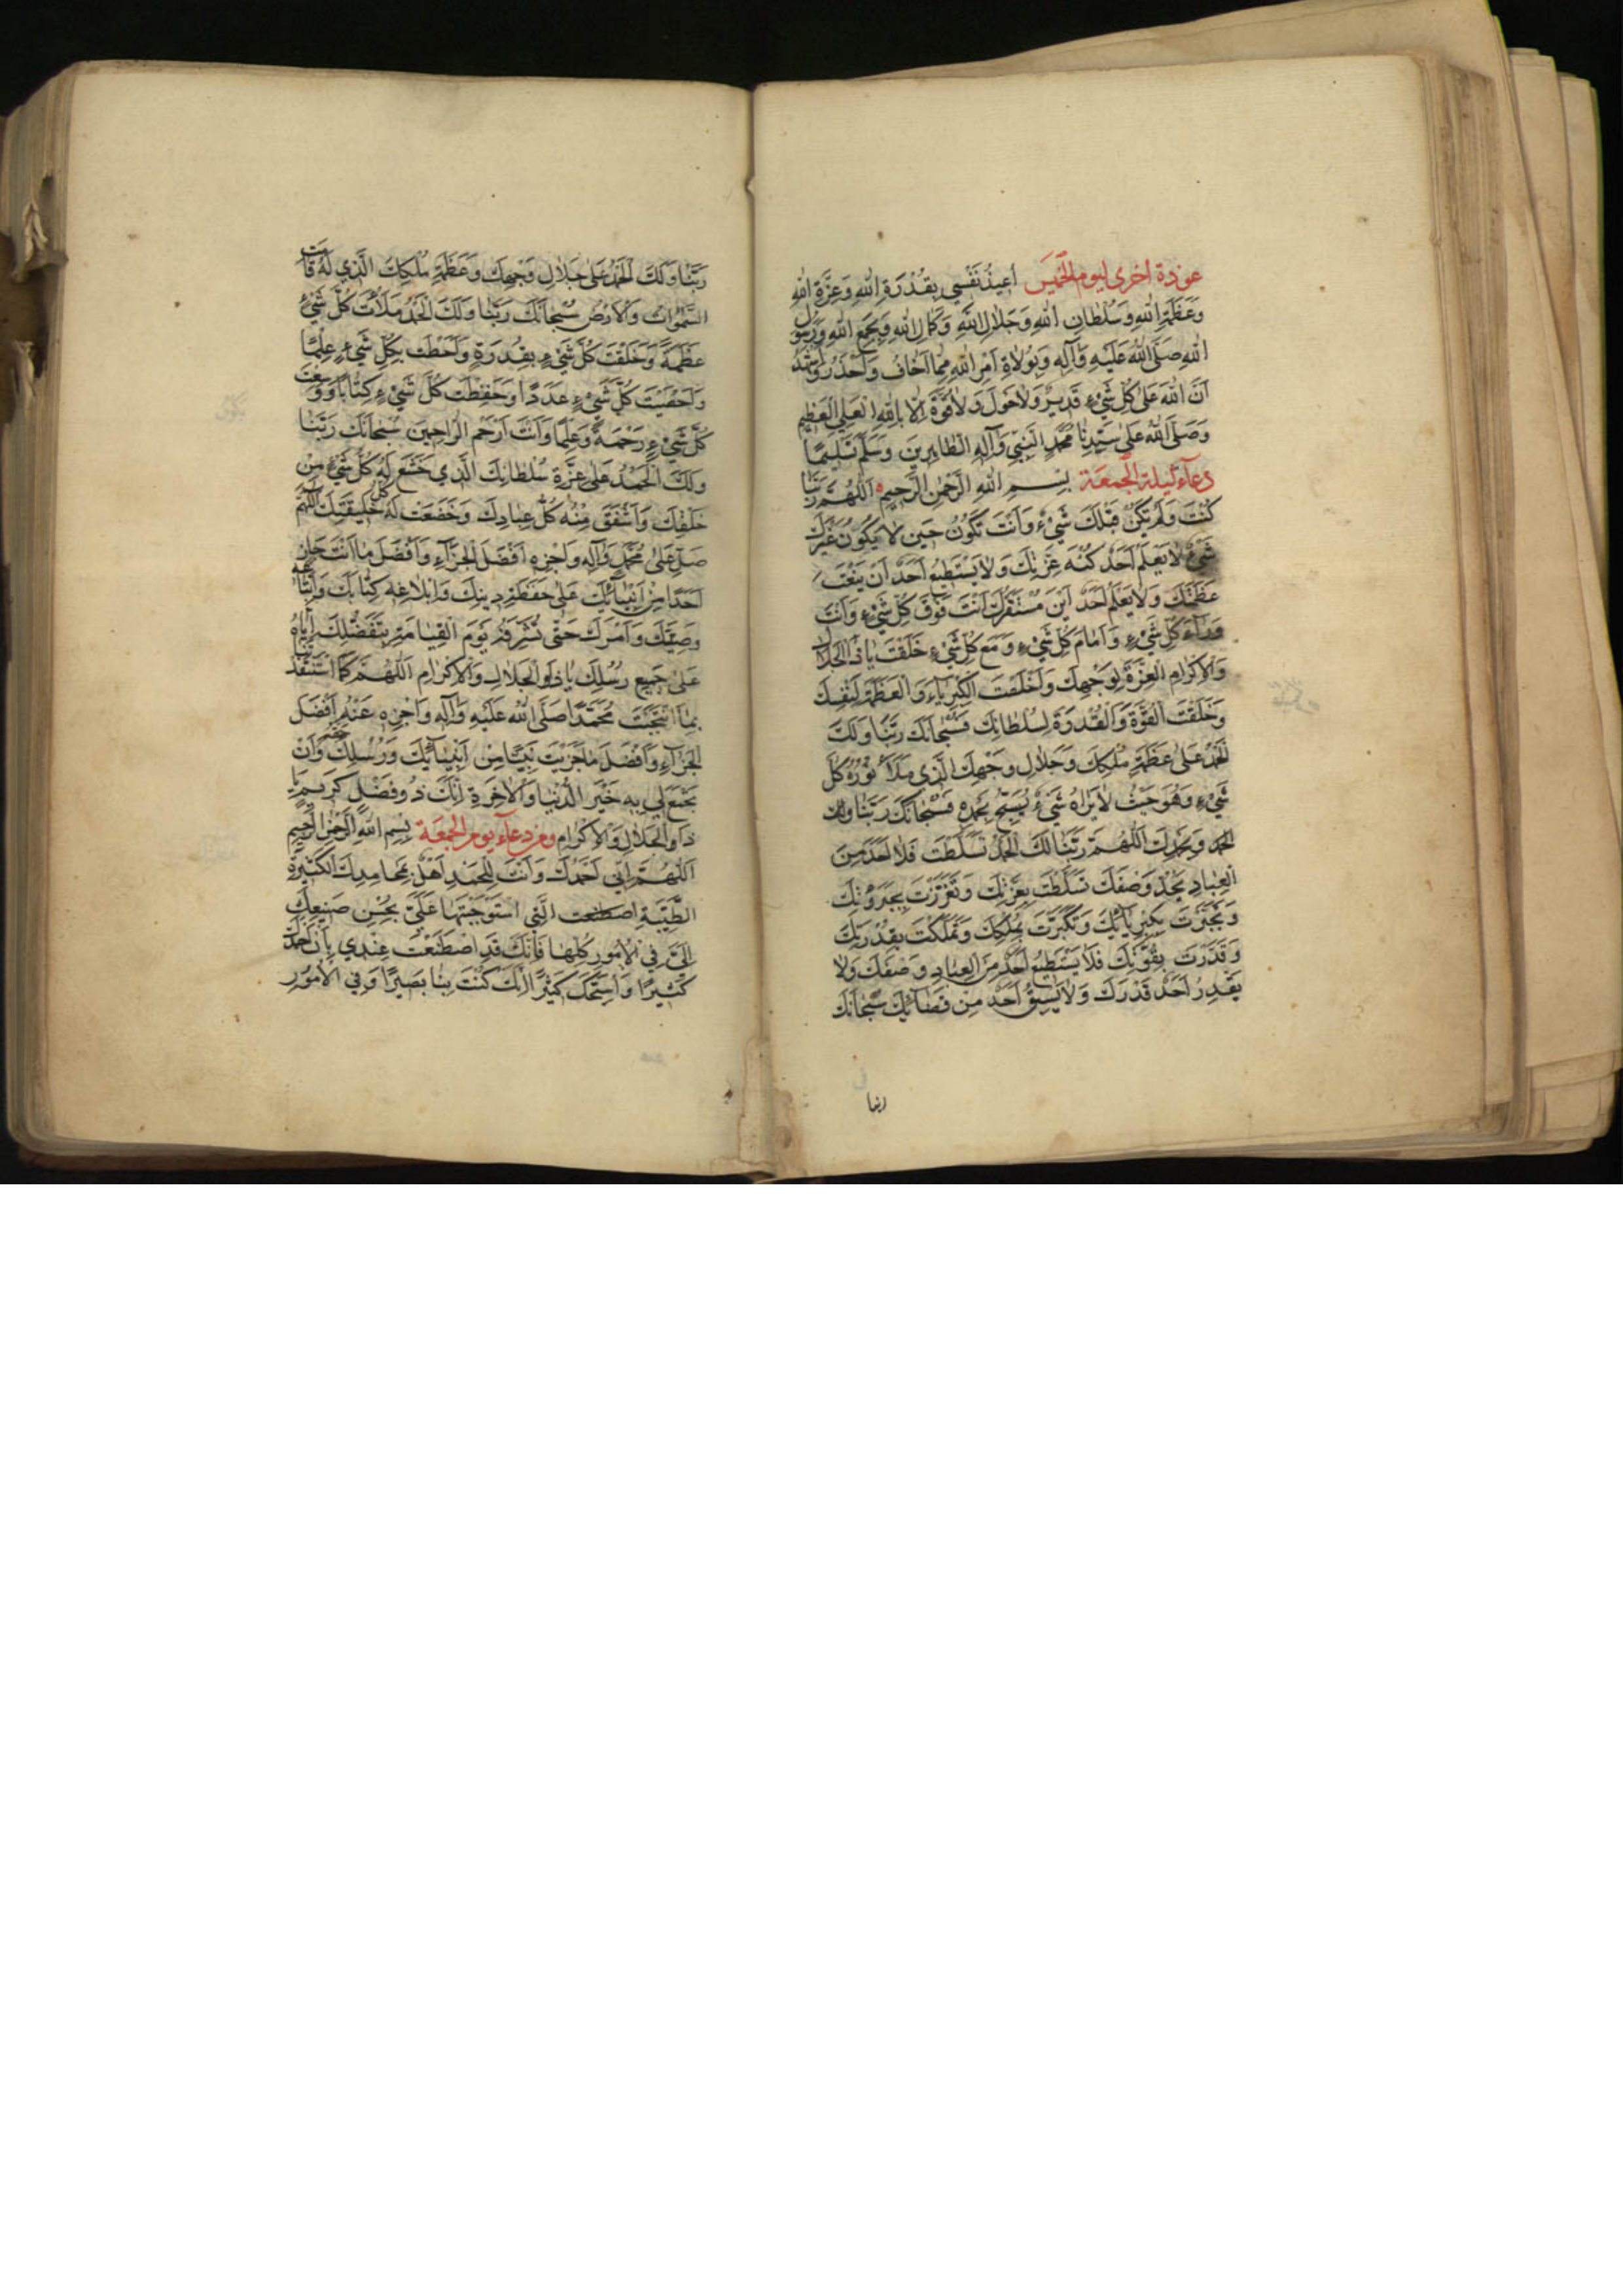 عوذة اخرى ليوم الخميس أُعيذُ نَفْسي بِقُدْرَةِ اللهِ وَعِزَّةِ اللهِ
وَعَظَمَةِ اللهِ وَسُلْطانِ اللهِ وَجَلالِ اللهِ وَكَمالِ اللهِ وَبِجَمْعِ اللهِ وَرَسُولِ
اللهِ صَلَّى اللهُ عَلَيْهِ وَآلِهِ وَبِوُلاةِ اَمْرِ اللهِ مِمّا اَخافُ وَاَحْذَرُ وَاَشْهَدُ
اَنَّ اللهَ عَلى كُلِّ شَيْءٍ قَديرٌ وَلا حَوْلَ وَلا قُوَّةَ اِلاّ بِاللهِ الْعَلِيِّ الْعَظيمِ
وَصَلَّى اللهُ عَلى سَيِّدِنا مُحَمَّدٍ النَّبِيِّ وَآلِهِ الطّاهِرينَ وَسَلَّمَ تَسْليمًا
دعاء ليلة الجمعة بِسْمِ اللهِ الرَّحْمنِ الرَّحيمِ اَللّهُمَّ رَبَّنا
كُنْتَ وَلَمْ يَكُنْ قَبْلَكَ شَيْءٌ وَاَنْتَ تَكُونُ حينَ لا يَكُونُ غَيْرَكَ
شَيْءٌ لا يَعْلَمُ اَحَدٌ كُنْهَ عِزَّتِكَ وَلا يَسْتَطيعُ اَحَدٌ اَنْ يَنْعَتَ
عَظَمَتَكَ وَلا يَعْلَمُ اَحَدٌ اَيْنَ مُسْتَقَرُّكَ اَنْتَ فَوْقَ كُلِّ شَيْءٍ وَاَنْتَ
وَراءَ كُلِّ شَيْءٍ وَاَمامَ كُلِّ شَيْءٍ وَمَعَ كُلِّ شَيْءٍ خَلَقْتَ يا ذَا الْجَلالِ
وَالْاِكْرامِ الْعِزَّةَ لِوَجْهِكَ وَاَخْلَصْتَ الْكِبْرِياءَ وَالْعَظَمَةَ لِنَفْسِكَ
وَخَلَقْتَ الْقُوَّةَ وَالْقُدْرَةَ لِسُلْطانِكَ فَسُبْحانَكَ رَبَّنا وَلَكَ
الْحَمْدُ عَلى عَظَمَةِ مُلْكِكَ وَجَلالِ وَجْهِكَ الَّذي مَلَأَ نُورُهُ كُلَّ
شَيْءٍ وَهُوَ حَيْثُ لا يَراهُ شَيْءٌ يُسَبِّحُ بِحَمْدِهِ فَسُبْحانَكَ رَبَّنا وَلَكَ
الْحَمْدُ وَبِحَمْدِكَ اَللّهُمَّ رَبَّنا لَكَ الْحَمْدُ تَسَلَّطْتَ فَلا اَحَدَ مِنَ
الْعِبادِ يَحُدُّ وَصْفَكَ تَسَلَّطْتَ بِعِزَّتِكَ وَتَعَزَّزْتَ بِجَبَرُوتِكَ
وَتَجَبَّرْتَ بِكِبْرِيائِكَ وَتَكَبَّرْتَ بِمُلْكِكَ وَتَمَلَّكْتَ بِقُدْرَتِكَ
وَقَدَرْتَ بِقُوَّتِكَ فَلا يَسْتَطيعُ اَحَدٌ مِنَ الْعِبادِ وَصْفَكَ وَلا
يَقْدِرُ اَحَدٌ قَدْرَكَ وَلا يَسْبِقُ اَحَدٌ مِنْ قَضائِكَ سُبْحانَكَ
ربنا
رَبَّنا وَلَكَ الْحَمْدُ عَلى جَلالِ وَجْهِكَ وَعَظَمَةِ مُلْكِكَ الَّذي لَهُ قامَتِ
السَّمواتُ وَالْاَرْضُ سُبْحانَكَ رَبَّنا وَلَكَ الْحَمْدُ مَلَأْتَ كُلَّ شَيْءٍ
عَظَمَةً وَخَلَقْتَ كُلَّ شَيْءٍ بِقُدْرَةٍ وَاَحَطْتَ بِكُلِّ شَيْءٍ عِلْمًا
وَاَحْصَيْتَ كُلَّ شَيْءٍ عَدَدًا وَحَفِظْتَ كُلَّ شَيْءٍ كِتابًا وَوَسِعْتَ
كُلَّ شَيْءٍ رَحْمَةً وَعِلْمًا وَاَنْتَ اَرْحَمُ الرّاحِمينَ سُبْحانَكَ رَبَّنا
وَلَكَ الْحَمْدُ عَلى عِزَّةِ سُلْطانِكَ الَّذي خَشَعَ لَهُ كُلُّ شَيْءٍ مِنْ
خَلْقِكَ وَاَشْفَقَ مِنْهُ كُلُّ عِبادِكَ وَخَضَعَتْ لَهُ كُلُّ خَليقَتِكَ اَللّهُمَّ
صَلِّ عَلى مُحَمَّدٍ وَآلِهِ وَاجْزِهِ اَفْضَلَ الْجَزاءِ وَاَفْضَلَ ما اَنْتَ جازٍ
اَحَدًا مِنْ اَنْبِيائِكَ عَلى حِفْظِهِ دينَكَ وَاِبْلاغِهِ كِتابَكَ وَاتِّباعِهِ
وَصِيَّتَكَ وَاَمْرَكَ حَتّى تُشَرِّفَهُ يَوْمَ الْقِيامَةِ بِتَفْضيلِكَ اِيّاهُ
عَلى جَميعِ رُسُلِكَ يا ذَا الْجَلالِ وَالْاِكْرامِ اَللّهُمَّ كَمَا اسْتَنْقَذْتَنا
بِمَا انْتَجَبْتَ مُحَمَّدًا صَلَّى اللهُ عَلَيْهِ وَآلِهِ وَاجْزِهِ عَنْهُمْ اَفْضَلَ
الْجَزاءِ وَاَفْضَلَ ما جَزَيْتَ نَبِيًّا مِنْ اَنْبِيائِكَ وَرُسُلِكَ وَاَنْ
تَجْمَعَ لي بِهِ خَيْرَ الدُّنْيا وَالْاخِرَةِ اِنَّكَ ذُو فَضْلٍ كَريمٍ يا
ذَا الْجَلالِ وَالْاِكْرامِ ومن دعاء يوم الجمعة بِسْمِ اللهِ الرَّحْمنِ الرَّحيمِ
اَللّهُمَّ اِنّي اَحْمَدُكَ وَاَنْتَ لِلْحَمْدِ اَهْلٌ بِمَحامِدِكَ الْكَثيرَةِ
الطَّيِّبَةِ الَّتي اسْتَوْجَبْتَها عَلَيَّ بِحُسْنِ صَنيعِكَ
اِلَيَّ فِي الْاُمُورِ كُلِّها فَاِنَّكَ قَدِ اصْطَنَعْتَ عِنْدي بِاَنْ اَحْمَدَكَ
كَثيرًا وَاُسَبِّحَكَ كَثيرًا اِنَّكَ كُنْتَ بِنا بَصيرًا وَفِي الْاُمُورِ